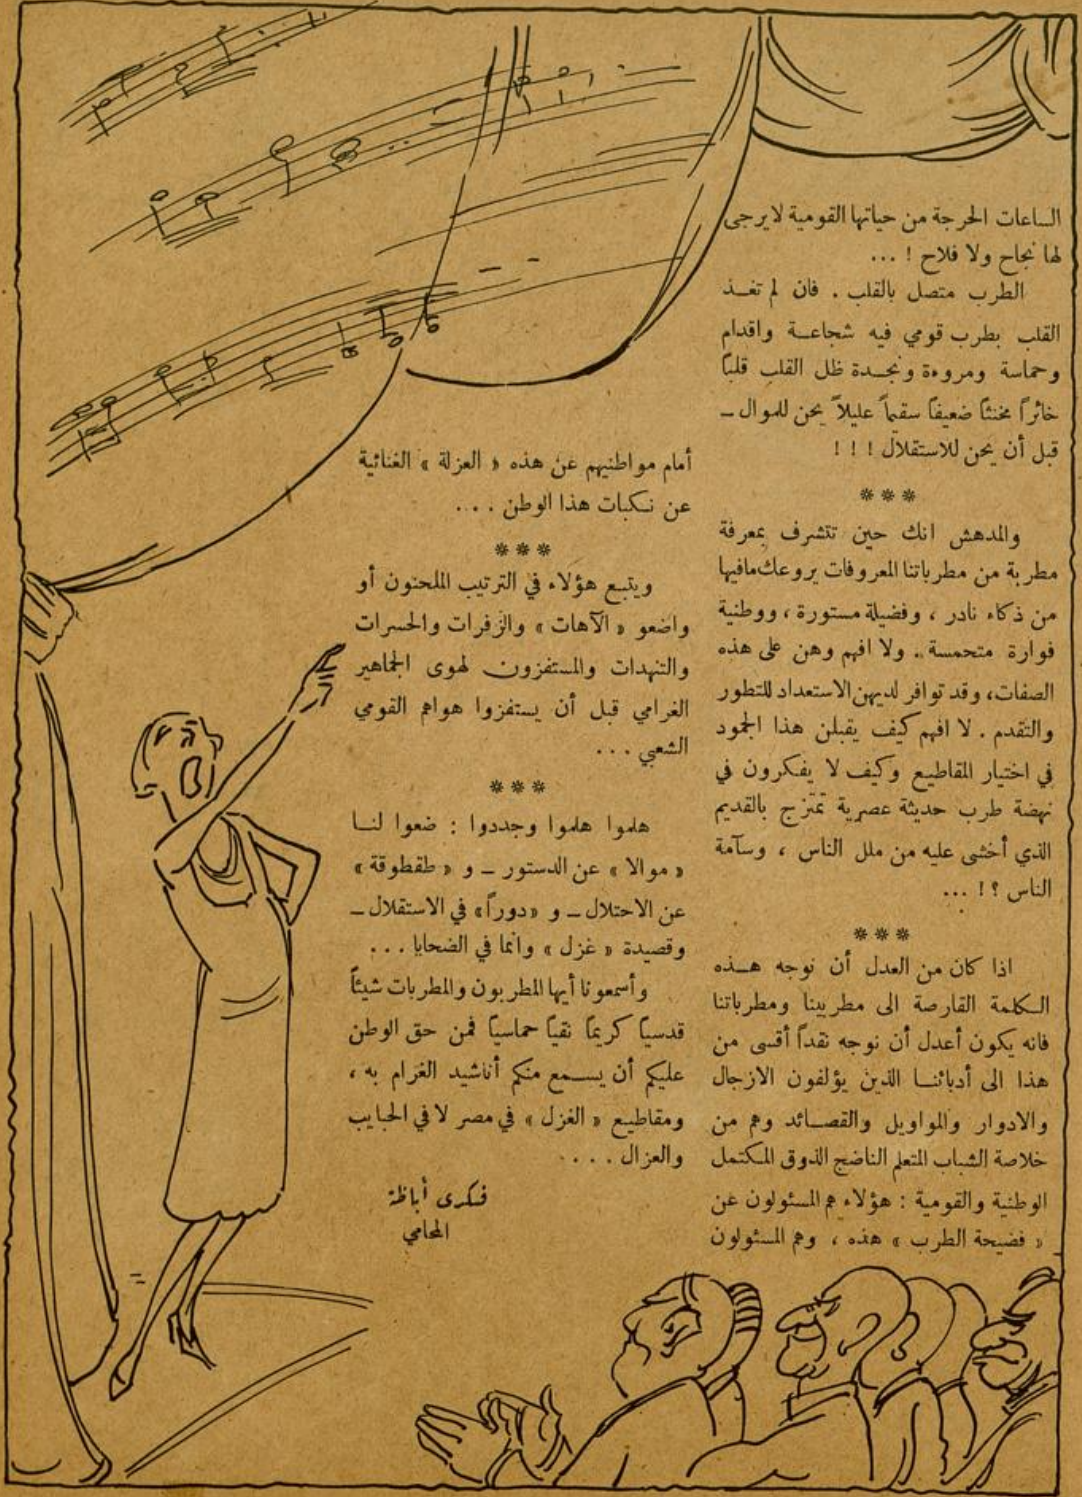 الساعات الحرجة من حياتها القومية لا يرجى
لها نجاح ولا فلاح ! ...
الطرب متصل بالقلب . فان لم تغذ
القلب بطرب قومي فيه شجاعة واقدام
وحماسة ومروءة ونجدة ظل القلب قلباً
خائراً مخنثاً ضعيفاً سقيماً عليلاً يحن للموال ــ
قبل أن يحن للاستقلال ! ! !
***
والمدهش انك حين تتشرف بمعرفة
مطربة من مطرباتنا المعروفات يروعك مافيها
من ذكاء نادر ، وفضيلة مستورة ، ووطنية
فوارة متحمسة . ولا افهم وهن على هذه
الصفات، وقد توافر لديهن الاستعداد للتطور
والتقدم . لا افهم كيف يقبلن هذا الجمود
في اختيار المقاطيع وكيف لا يفكرون في
نهضة طرب حديثة عصرية تمتزج بالقديم
الذي أخشى عليه من ملل الناس ، وسآمة
الناس ؟ ! ...
***
اذا كان من العدل أن نوجه هذه
الكلمة القارصة الى مطربينا ومطرباتنا
فانه يكون أعدل أن نوجه نقداً أقسى من
هذا الى أدبائنا الذين يؤلفون الازجال
والادوار والمواويل والقصائد وهم من
خلاصة الشباب المتعلم الناضج الذوق المكتمل
الوطنية والقومية : هؤلاء هم المسئولون عن
« فضيحة الطرب » هذه ، وهم المسئولون
أمام مواطنيهم عن هذه « العزلة » الغنائية
عن نكبات هذا الوطن . . .
***
ويتبع هؤلاء في الترتيب الملحنون أو
واضعو « الآهات » والزفرات والحسرات
والتنهدات والمستفزون لهوى الجماهير
الغرامي قبل أن يستفزوا هواهم القومي
الشعبي . . .
***
هلموا هلموا وجددوا : ضعوا لنا
« موالا » عن الدستور ــ و « طقطوقة »
عن الاحتلال ــ و «دوراً» في الاستقلال ــ
وقصيدة « غزل » وانما في الضحايا . . .
وأسمعونا أيها المطربون والمطربات شيئاً
قدسياً كريماً نقياً حماسياً فمن حق الوطن
عليكم أن يسمع منكم أناشيد الغرام به ،
ومقاطيع « الغزل » في مصر لا في الحبايب
والعزال . . . .
فكرى أباظة
المحامي